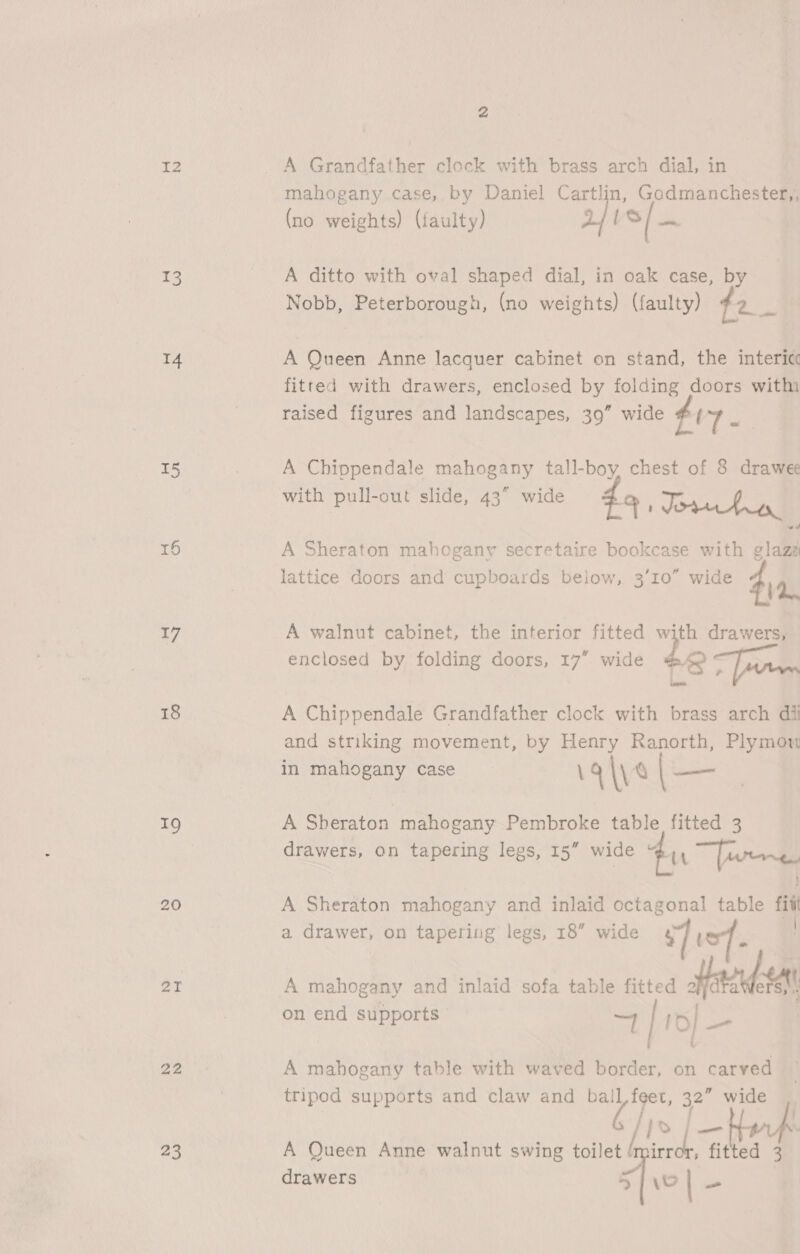 2
12 A Grandfather clock with brass arch dial, in
mahogany case, by Daniel Cartlin, Godmanchester,
(no weights) (faulty) 2/10/-
13 A ditto with oval shaped dial, in oak case, by
Nobb, Peterborough, (no weights) (faulty) £2 -
14 A Queen Anne lacquer cabinet on stand, the interio
fitted with drawers, enclosed by folding doors with
raised figures and landscapes, 39" wide £17 -
15 A Chippendale mahogany tall-boy chest of 8 drawe
with pull-out slide, 43" wide £9.
16 A Sheraton mahogany secretaire bookcase with glaze
lattice doors and cupboards below, 3'10" wide £12
17 A walnut cabinet, the interior fitted with drawers,
enclosed by folding doors, 17" wide £8 - Turner
18 A Chippendale Grandfather clock with brass arch di
and striking movement, by Henry Ranorth, Plymou
in mahogany case 19/10/-
19 A Sheraton mahogany Pembroke table fitted 3
drawers, on tapering legs, 15" wide £11 Turner
20 A Sheraton mahogany and inlaid octagonal table fit
a drawer, on tapering legs, 18" wide /10/-
21 A mahogany and inlaid sofa table fitted 2 drawers,
on end supports 7/10/-
22 A mahogany table with waved border, on carved
tripod supports and claw and ball feet, 32" wide
6/10/-
23 A Queen Anne walnut swing toilet mirror, fitted 3
drawers 5/10/-